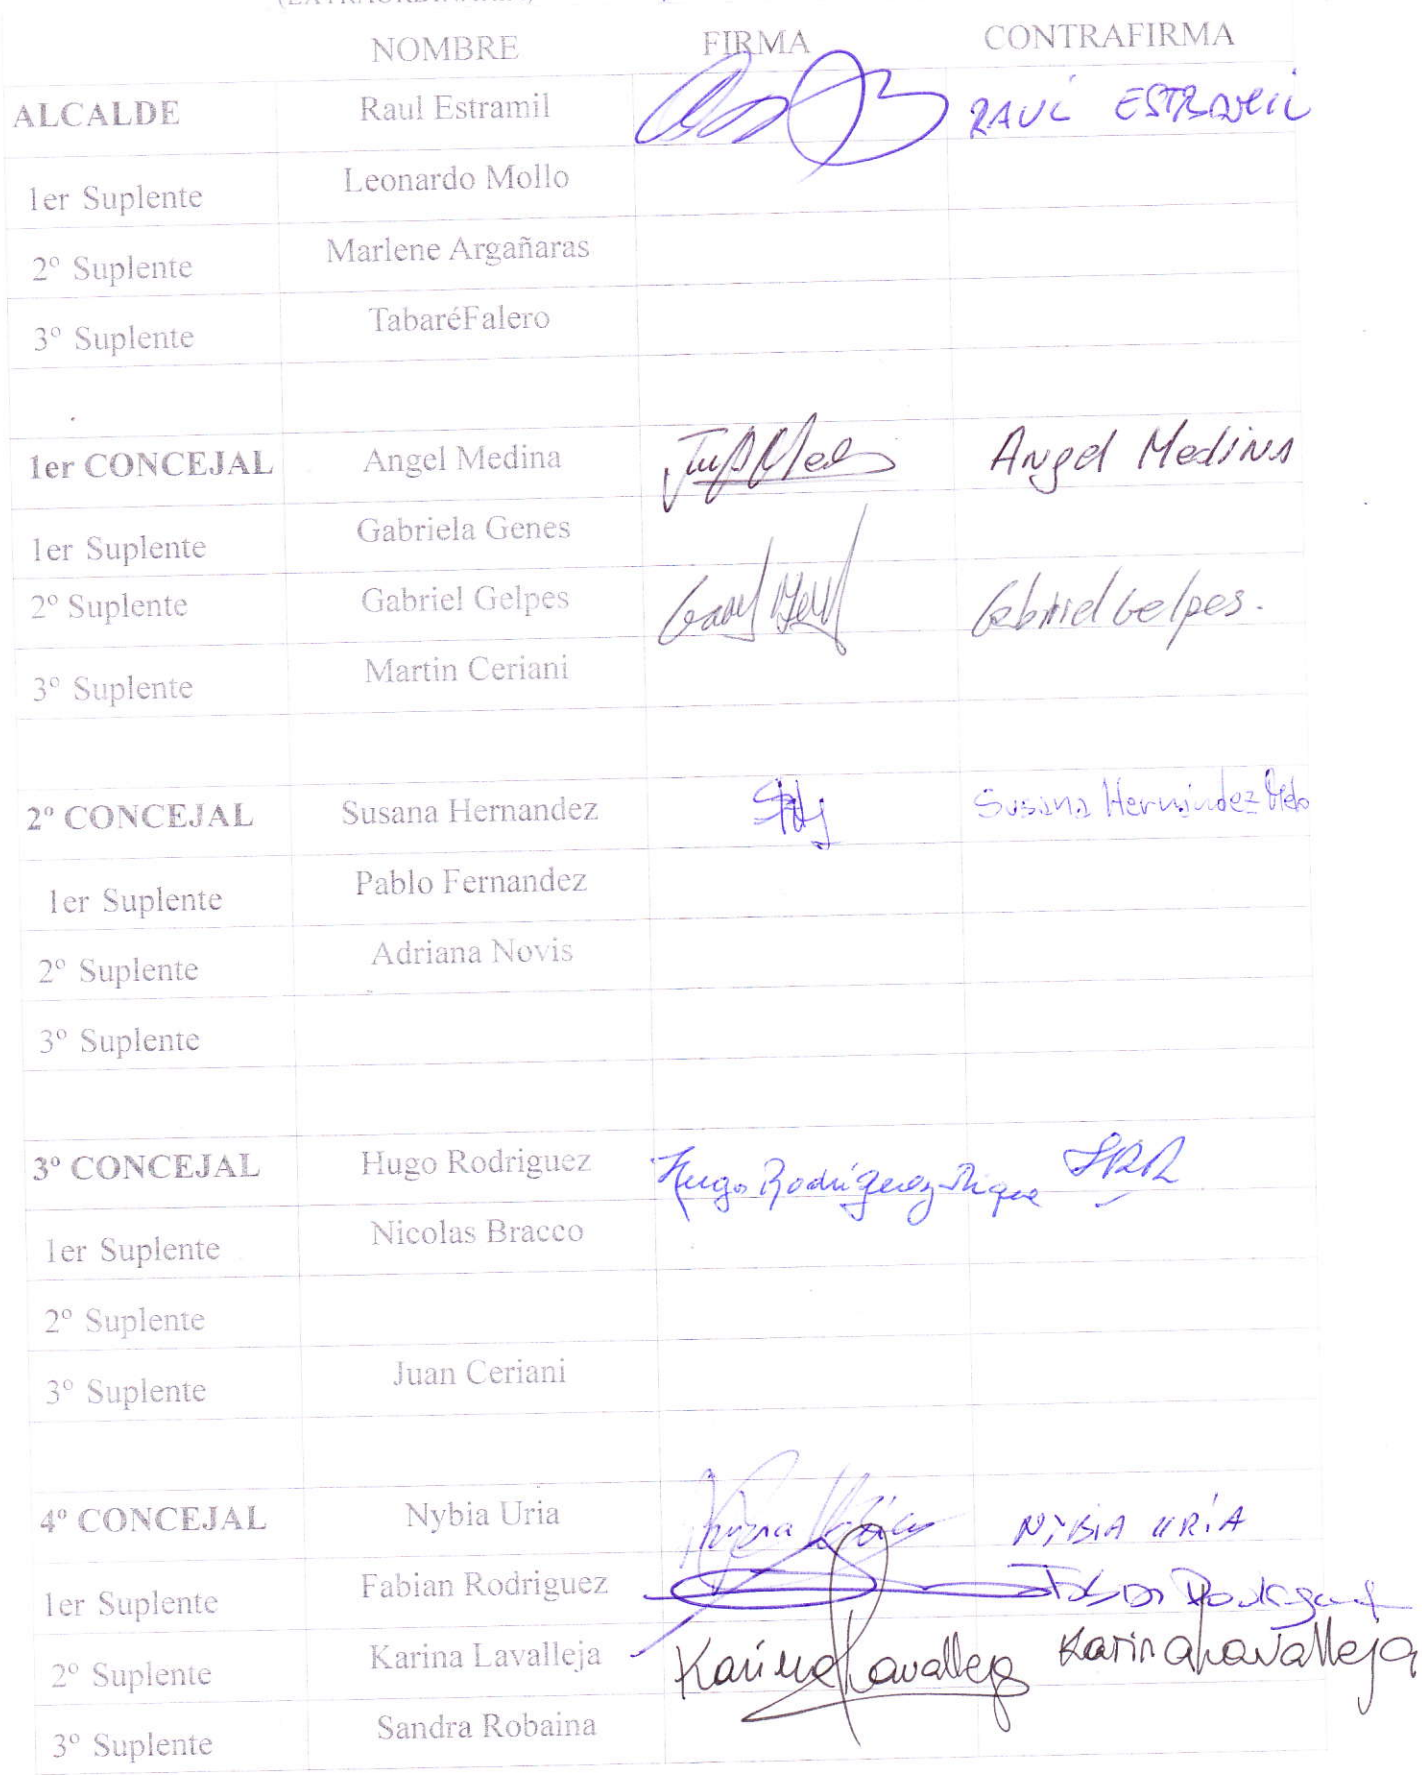 NOMBRE FIRMA CONTRAFIRMA
ALCALDE Raul Estramil RAUL ESTRAMIL
1er Suplente Leonardo Mollo
2º Suplente Marlene Argañaras
3º Suplente TabaréFalero
1er CONCEJAL Angel Medina Angel Medina
1er Suplente Gabriela Genes
2º Suplente Gabriel Gelpes Gabriel Gelpes.
3º Suplente Martin Ceriani
2º CONCEJAL Susana Hernandez Susana Hernández Melo
1er Suplente Pablo Fernandez
2º Suplente Adriana Novis
3º Suplente
3º CONCEJAL Hugo Rodriguez Hugo Rodríguez
1er Suplente Nicolas Bracco
2º Suplente
3º Suplente Juan Ceriani
4º CONCEJAL Nybia Uria NYBIA URIA
1er Suplente Fabian Rodriguez
2º Suplente Karina Lavalleja Karina Lavalleja Karina Lavalleja
3º Suplente Sandra Robaina